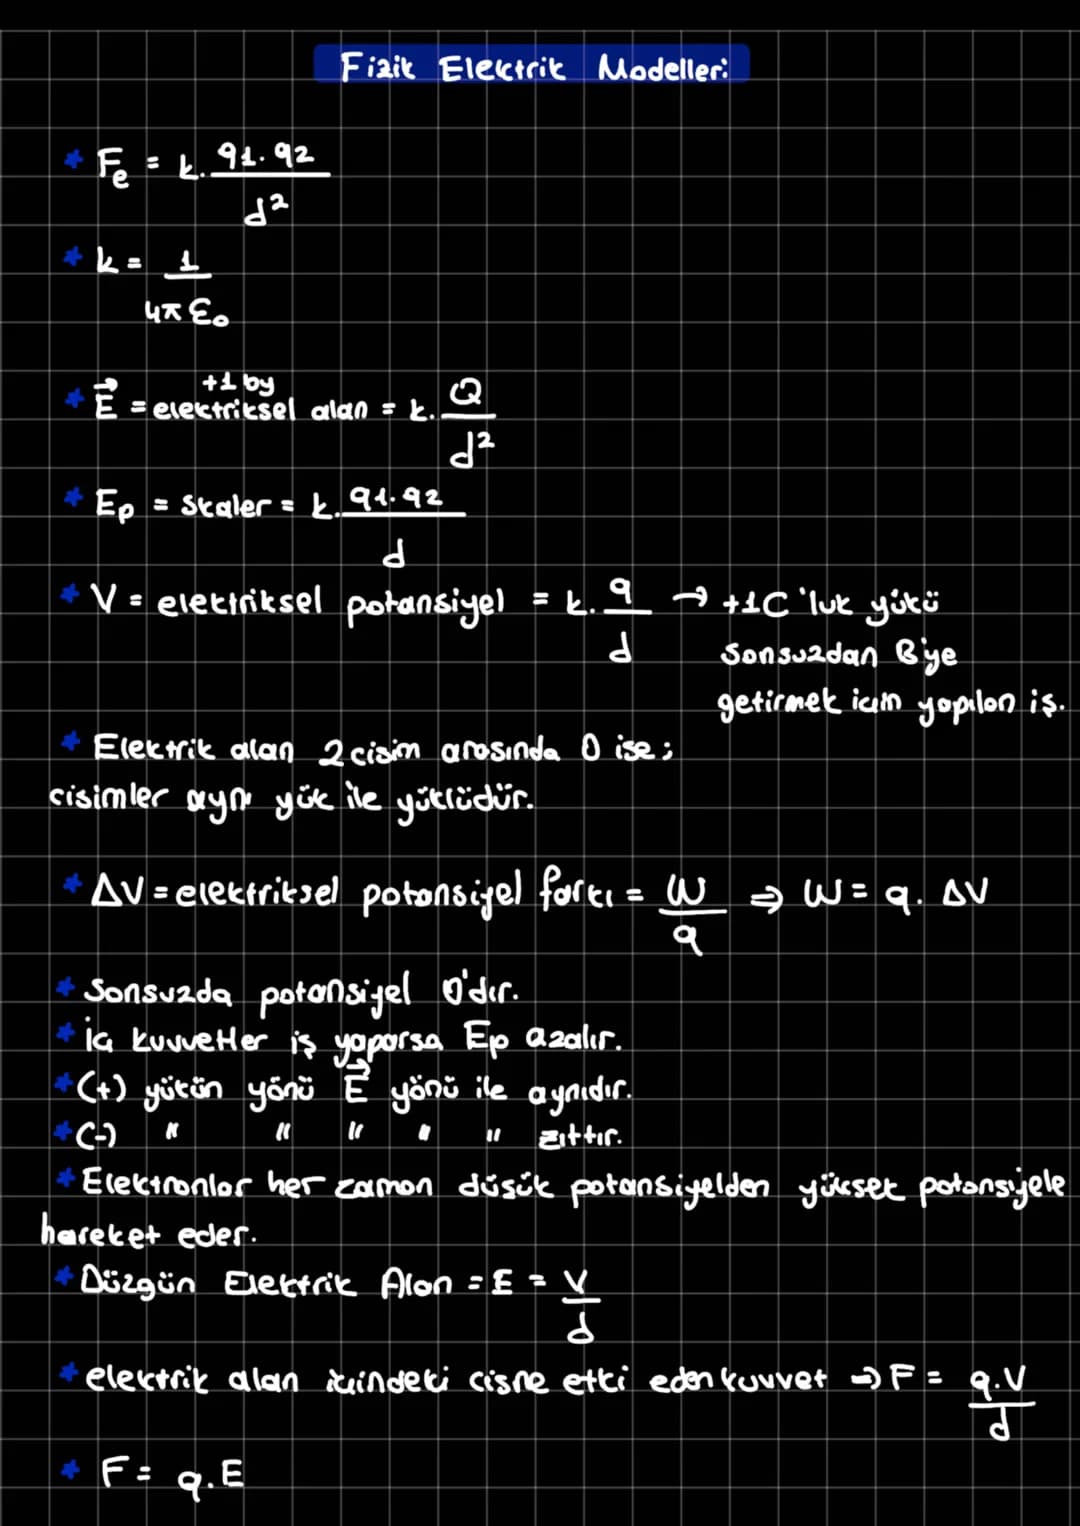 Fizik Elektrik Modeller:
* Fe = k. q1.q2 / d²
* k = 1 / 4π ε₀
+1 by
* E⃗ = elektriksel alan = k. Q / d²
* Ep = Skaler = k. q1.q2 / d
* V = elektriksel potansiyel = k. q / d → +1C'luk yükü
sonsuzdan B'ye
getirmek için yapılan iş.
* Elektrik alan 2 cisim arasında 0 ise;
cisimler aynı yük ile yüklüdür.
* ΔV = elektriksel potansiyel farkı = W / q ⇒ W = q. ΔV
* Sonsuzda potansiyel 0'dır.
* İç kuvvetler iş yaparsa Ep azalır.
* (+) yükün yönü E⃗ yönü ile aynıdır.
* (-) " " " " " zıttır.
* Elektronlar her zaman düşük potansiyelden yüksek potansiyele
hareket eder.
* Düzgün Elektrik Alan = E = V / d
* elektrik alan içindeki cisme etki eden kuvvet ⇒ F = q.V / d
* F = q.E